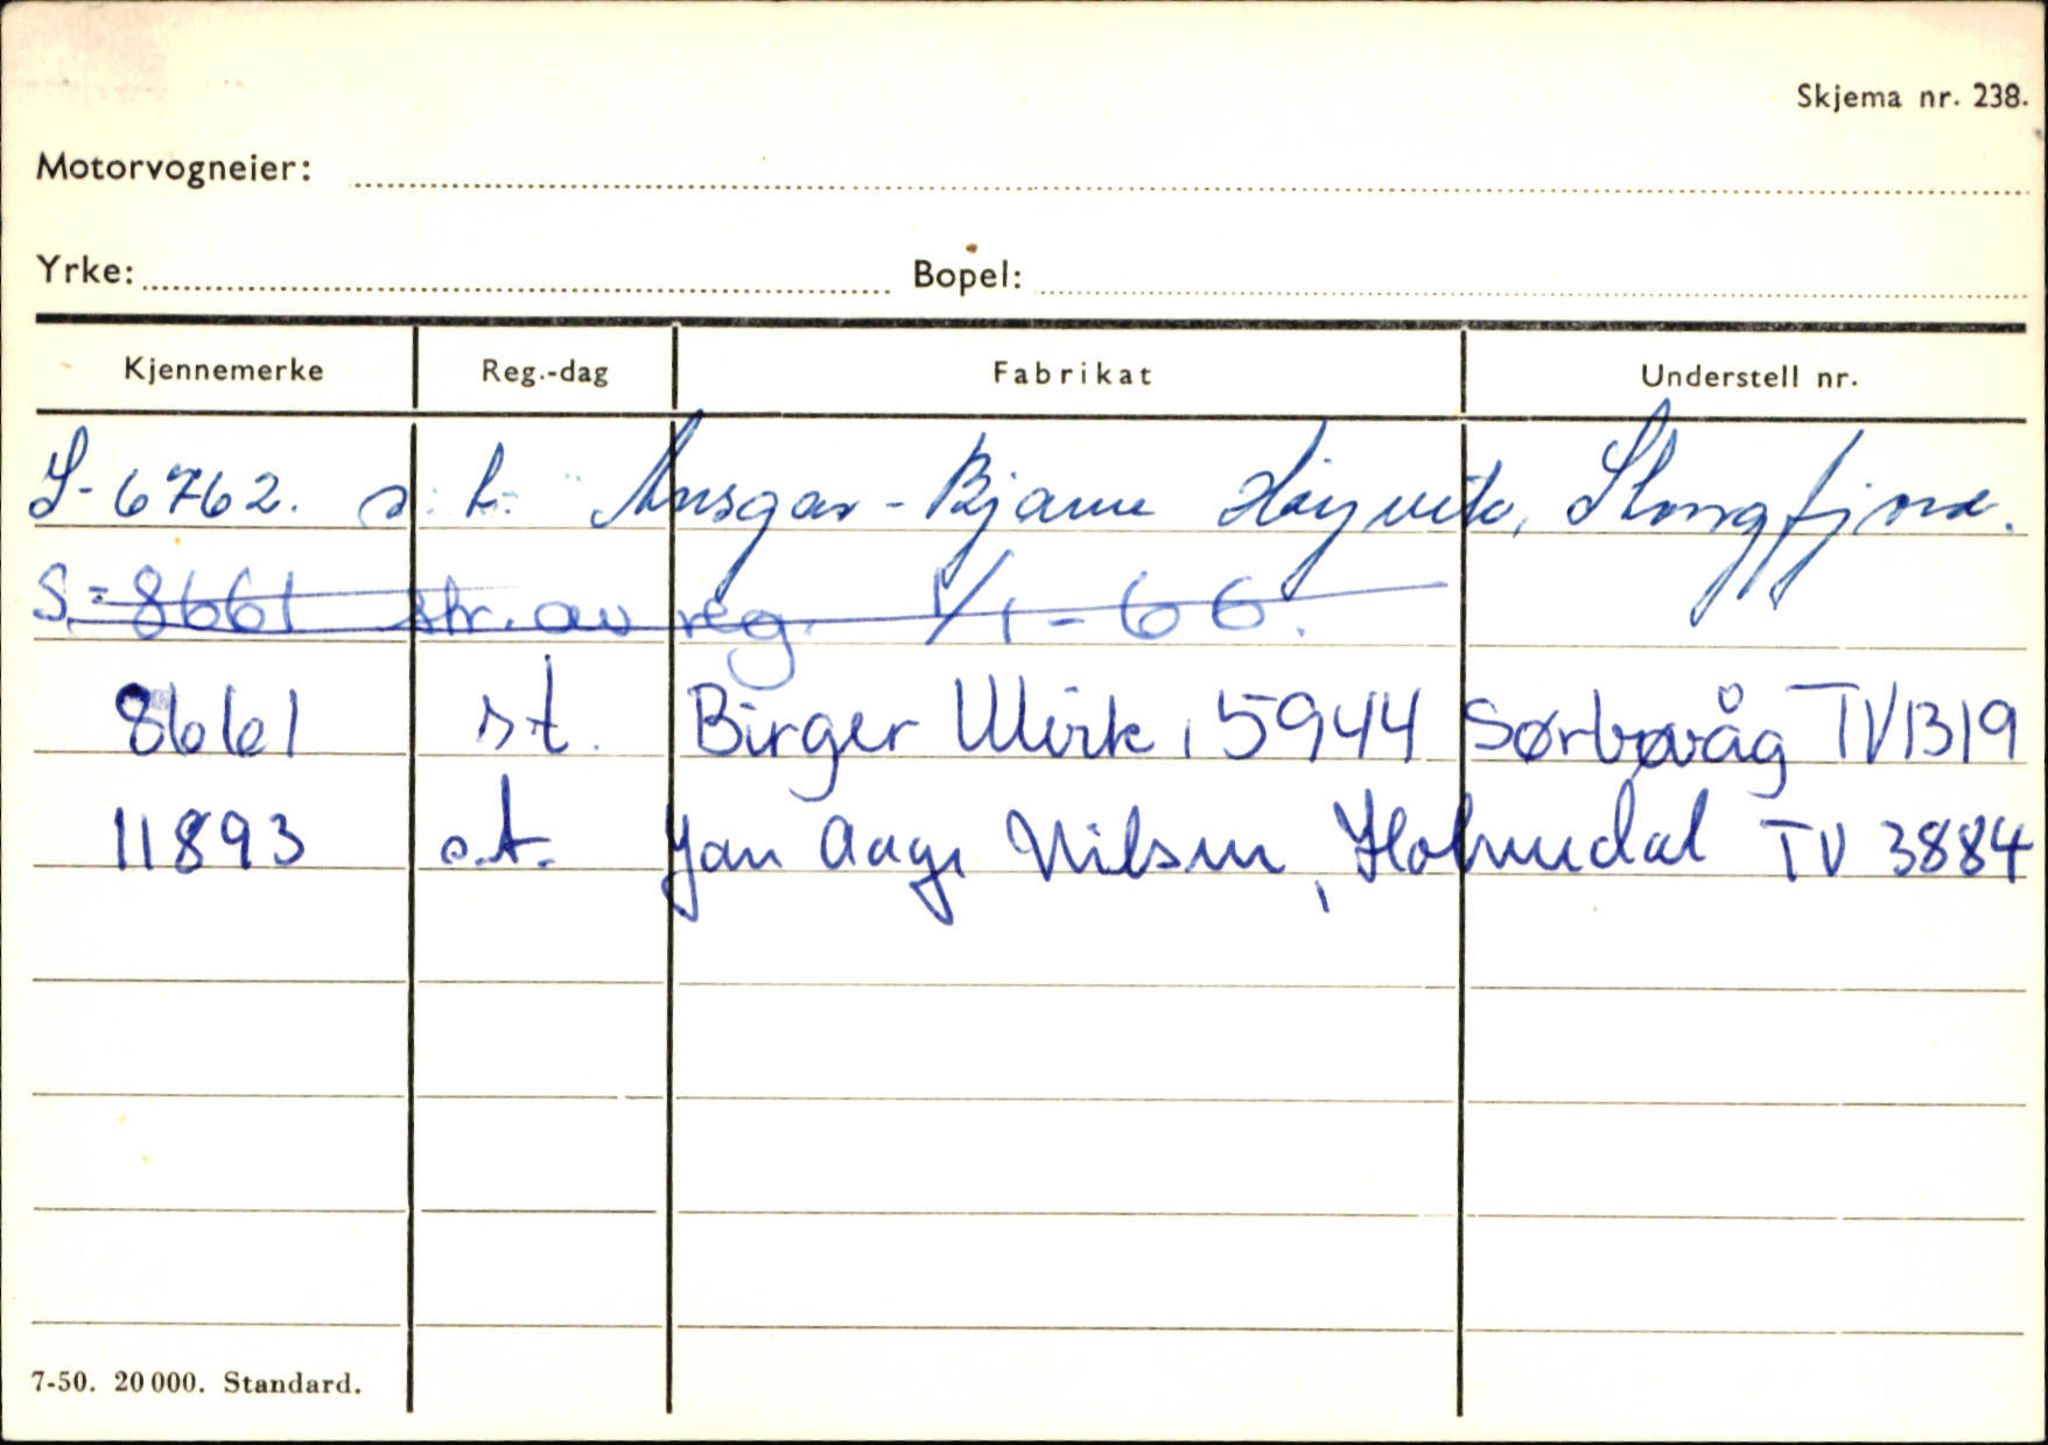 Skjema nr. 238.
Motorvogneier:
Yrke: Bopel:
Kjennemerke Reg.-dag Fabrikat Understell nr.
S-6762. s. t. Ansgar-Bjarne Høyvik, Stongfjord.
S-8661 str. av reg. 1/1-66.
8661 s.t. Birger Ulvik, 5944 Sørbøvåg TV1319
11893 s.t. Jan Aage Nilsen, Holmedal TV 3884
7-50. 20 000. Standard.